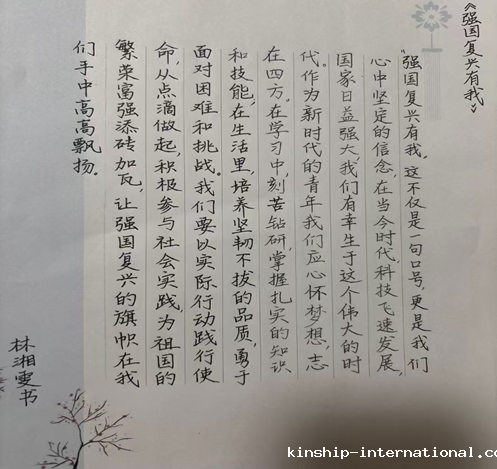 《强国复兴有我》
“强国复兴有我。这不仅是一句口号,更是我们
心中坚定的信念,在当今时代,科技飞速发展,
国家日益强大,我们有幸生于这个伟大的时
代。作为新时代的青年我们应心怀梦想,志
在四方。在学习中,刻苦钻研,掌握扎实的知识
和技能,在生活里,培养坚韧不拔的品质,勇于
面对困难和挑战。我们要以实际行动践行使
命,从点滴做起,积极参与社会实践,为祖国的
繁荣富强添砖加瓦,让强国复兴的旗帜在我
们手中高高飘扬。
林湘雯书
kinship-international.co